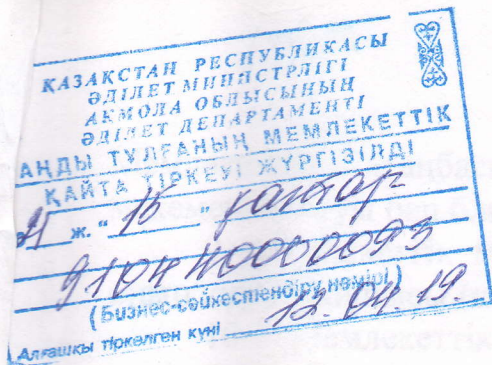 ҚАЗАҚСТАН РЕСПУБЛИКАСЫ
ӘДІЛЕТ МИНИСТРЛІГІ
АҚМОЛА ОБЛЫСЫНЫҢ
ӘДІЛЕТ ДЕПАРТАМЕНТІ
АҢДЫ ТҰЛҒАНЫҢ МЕМЛЕКЕТТІК
ҚАЙТА ТІРКЕУІ ЖҮРГІЗІЛДІ
ж. "15" қаңтар
(Бизнес-сәйкестендіру нөмірі)
Алғашқы тіркелген күні 12.04.19.